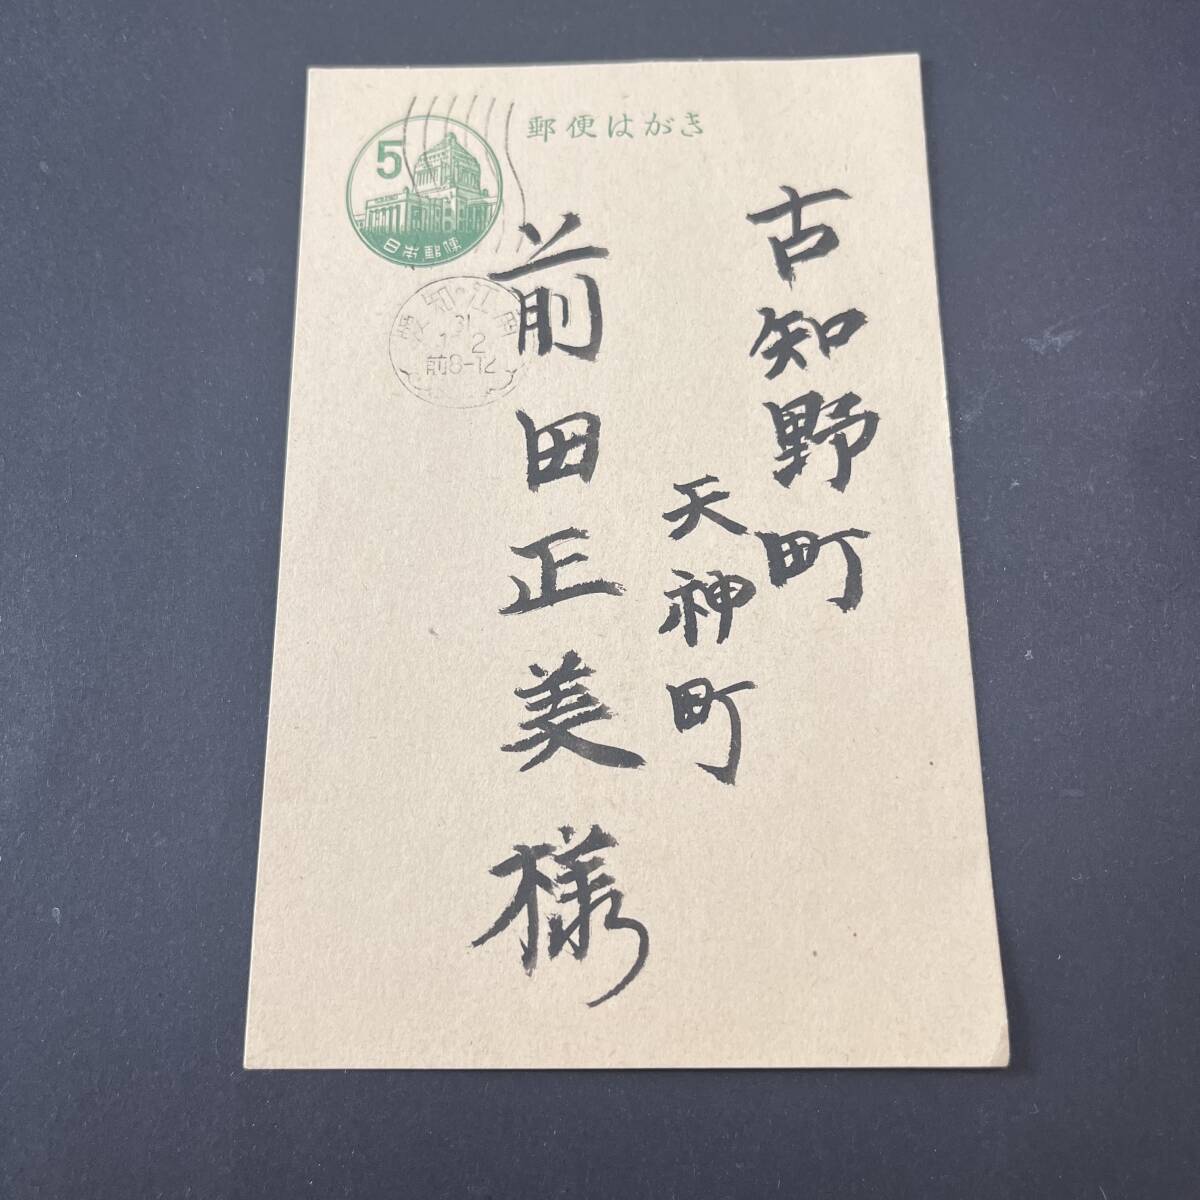 郵便はがき
5
日本郵便
愛知・江南
31
1 2
前8-12
古知野町
天神町
前田正美様